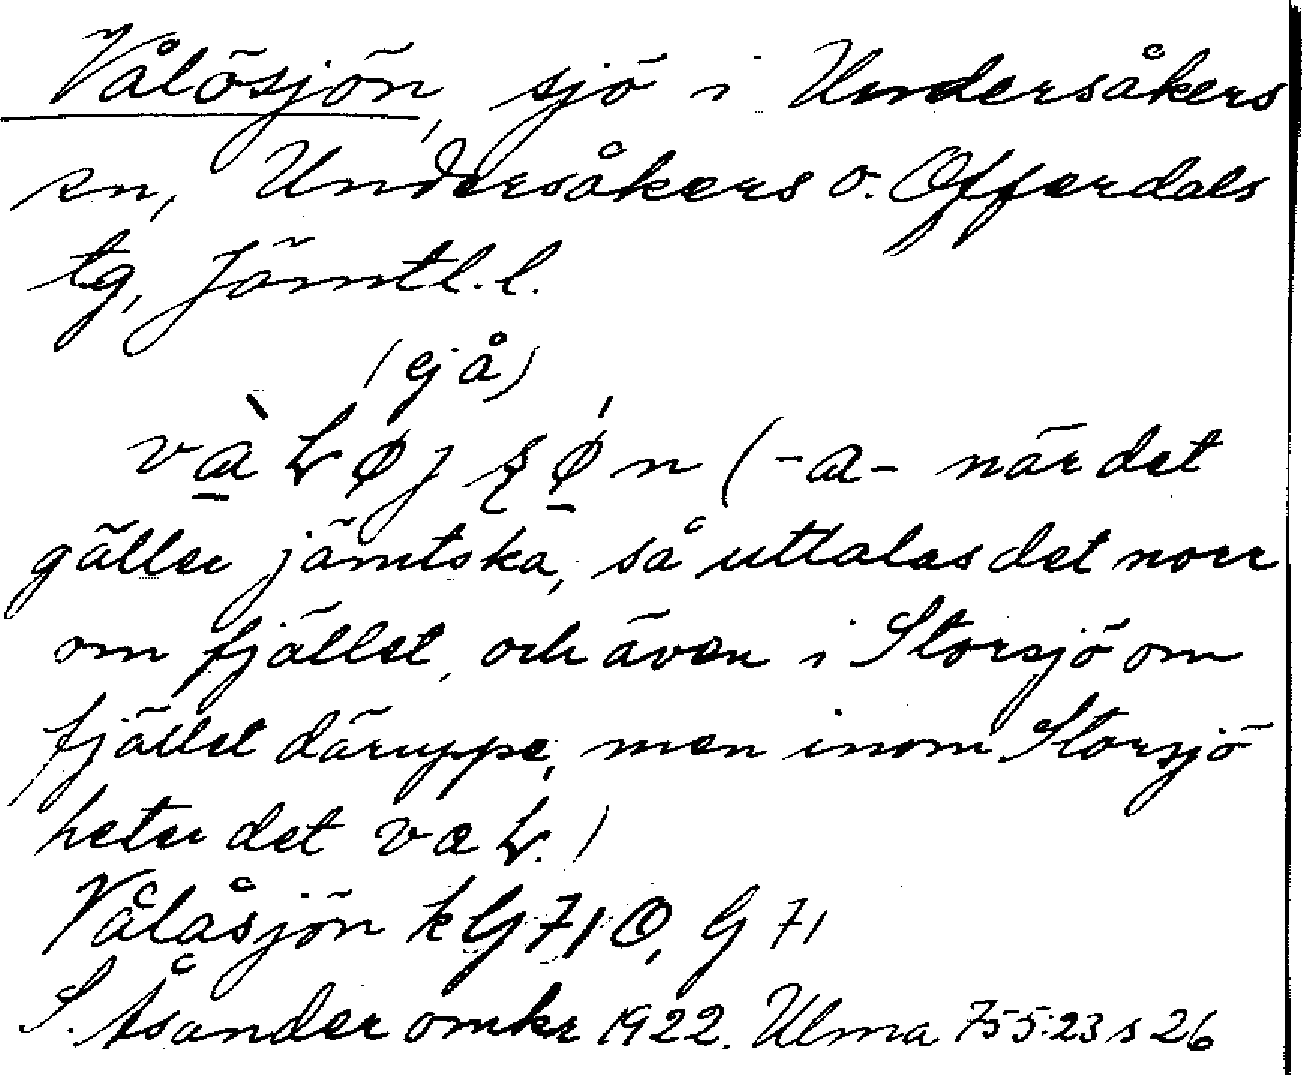 Vålösjön, sjö i Undersåkers
sn, Undersåkers o. Offerdals
tg, Jämtl. l.
(ej å)
(-a- när det
gäller jämtska, så uttalas det norr
om fjället, och även i Storsjö om
fjället däruppe, men inom Storsjö
heter det
Vålåsjön k G 71 O, G 71
S. Åsander omkr 1922. Ulma 755:23 s 26